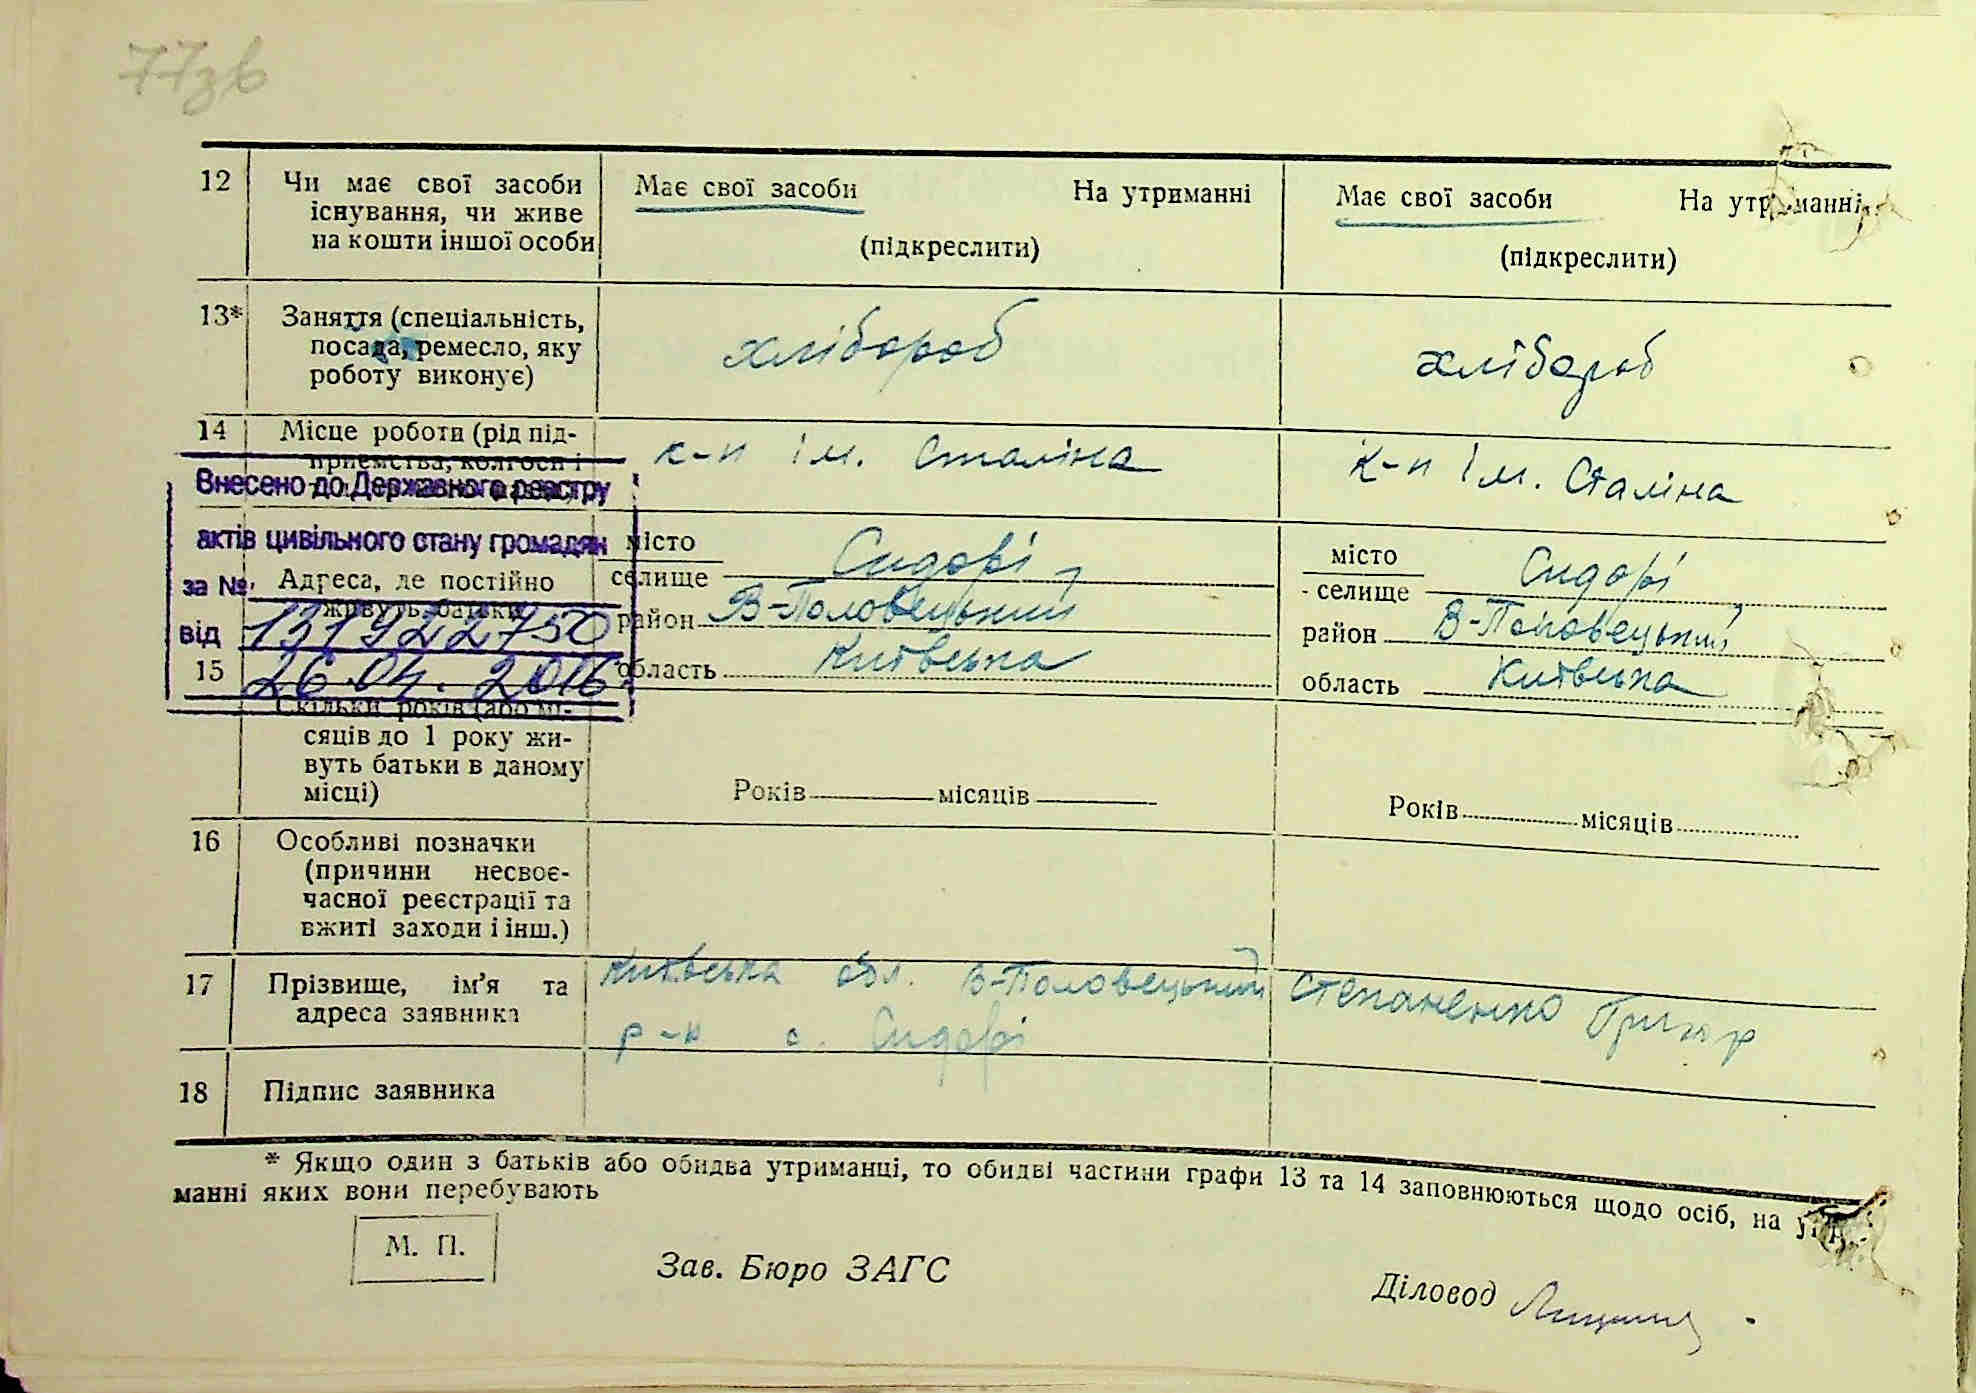 77зв
12 Чи має свої засоби існування, чи живе на кошти іншої особи
Має свої засоби На утриманні
(підкреслити)
Має свої засоби На утриманні
(підкреслити)
13* Заняття (спеціальність, посада, ремесло, яку роботу виконує)
хлібороб
хлібороб
14 Місце роботи (рід підприємства, колгосп і
к-п ім. Сталіна
к-п ім. Сталіна
Внесено до Державного реєстру
актів цивільного стану громадян
за №
від
26.04.2016
15 Адреса, де постійно
живуть батьки
місто
селище Сидорі
район В-Половецький
область Київська
місто
селище Сидорі
район В-Половецький
область Київська
Скільки років (або місяців до 1 року живуть батьки в даному місці)
Років місяців
Років місяців
16 Особливі позначки (причини несвоєчасної реєстрації та вжиті заходи і інш.)
17 Прізвище, ім'я та адреса заявника
Київська обл. В-Половецький
р-н с. Сидорі
Степаненко Григор
18 Підпис заявника
* Якщо один з батьків або обидва утриманці, то обидві частини графи 13 та 14 заповнюються щодо осіб, на утри-
манні яких вони перебувають
М. П.
Зав. Бюро ЗАГС
Діловод